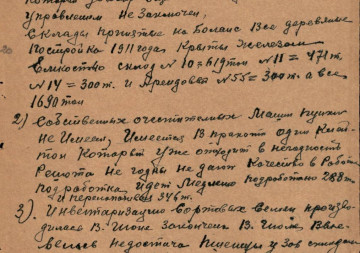 Управлением Не Закончен,
Склады принятые на Баланс Все деревяные
Постройка 1911 года Крыты Железом
Емкостью склад №10=619тон №11=471т.
№14=300т. и Арендован №55=300т. а всего
1690 тон
2) Собственных очистительных Машин
Не Имеем, Имеется В прокате один
тон Который уже отходит в негодность
Решета Не годны не дают Качество в Работе
подработка идет Медленно подработано 288т
и 346т.
3). Инвентаризацию Сортовых Семян произво-
дилась В. Июне Закончена В. Июле, Выяв-
недостача Пшеницы у Зав складом